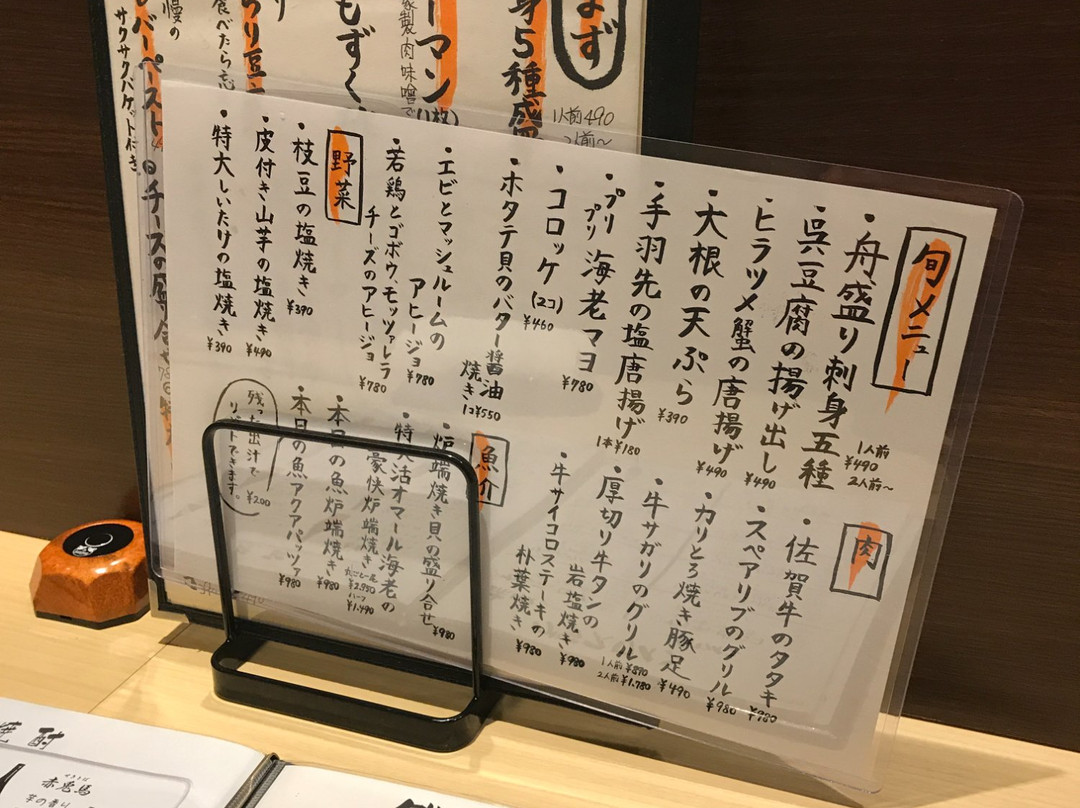 旬メニュー
・舟盛り刺身五種
1人前
¥490
2人前～
・呉豆腐の揚げ出し
¥490
・ヒラツメ蟹の唐揚げ
¥490
・大根の天ぷら
¥390
・手羽先の塩唐揚げ
1本¥180
・プリプリ海老マヨ
¥780
・コロッケ(2コ)
¥460
・ホタテ貝のバター醤油焼き
1コ¥550
・エビとマッシュルームの
アヒージョ
¥780
・若鶏とゴボウ、モッツァレラ
チーズのアヒージョ
¥780
野菜
・枝豆の塩焼き
¥390
・皮付き山芋の塩焼き
¥490
・特大しいたけの塩焼き
¥390
肉
・佐賀牛のタタキ
¥980
・スペアリブのグリル
¥980
・カリとろ焼き豚足
¥490
・牛サガリのグリル
1人前¥890
2人前¥1,780
・厚切り牛タンの
岩塩焼き
¥980
・牛サイコロステーキの
朴葉焼き
¥980
魚介
・炉端焼き貝の盛り合せ
¥980
・特大活オマール海老の
豪快炉端焼き
¥2,950
ハーフ
¥1,490
・本日の魚炉端焼き
¥980
・本日の魚アクアパッツァ
¥980
残った出汁で
リゾットできます。
¥200
まず
身5種盛
1人前490
2人前～
ーマン
家製肉味噌で
もずく
り豆
食べたら忘
慢の
バーペースト
サクサクバゲット付き
チーズの盛り合せ
焼酎
赤兎馬